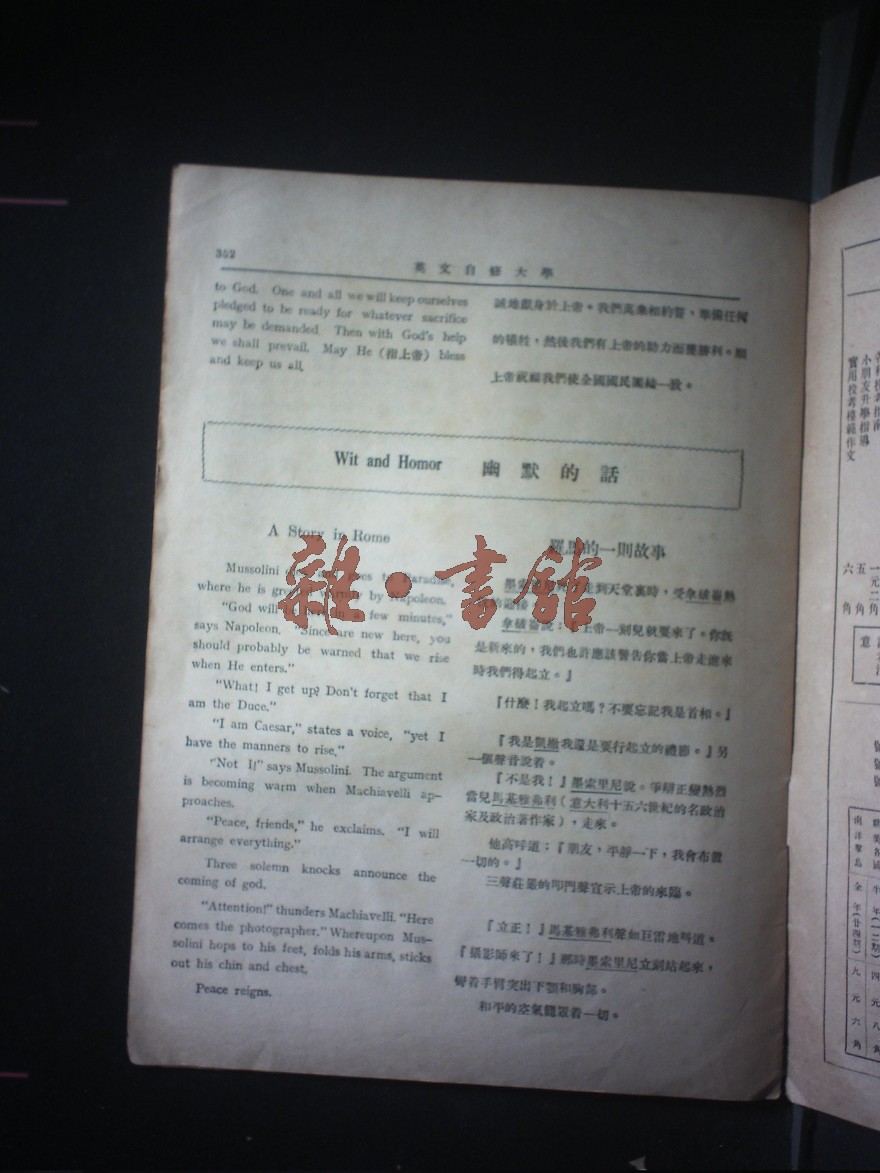 352
英文自修大學
to God. One and all we will keep ourselves
pledged to be ready for whatever sacrifice
may be demanded Then with God's help
we shall prevail. May He (指上帝) bless
and keep us all.
誠地獻身於上帝。我們萬衆相約誓,準備任何
的犧牲,然後我們有上帝的助力而獲勝利。願
上帝祝福我們使全國國民團結一致。
Wit and Homor 幽默的話
A Story in Rome
Mussolini dies and goes to Paradise,
where he is greeted warmly by Napoleon.
"God will be here in a few minutes,"
says Napoleon. "Since are new here, you
should probably be warned that we rise
when He enters."
"What! I get up? Don't forget that I
am the Duce."
"I am Caesar," states a voice, "yet I
have the manners to rise."
"Not I!" says Mussolini. The argument
is becoming warm when Machiavelli ap-
proaches.
"Peace, friends," he exclaims. "I will
arrange everything."
Three solemn knocks announce the
coming of god.
"Attention!" thunders Machiavelli. "Here
comes the photographer." Whereupon Mus-
solini hops to his feet, folds his arms, sticks
out his chin and chest.
Peace reigns.
羅馬的一則故事
墨走到天堂裏時,受拿破崙熱
拿破崙說:『上帝一刻兒就要來了。你旣
是新來的,我們也許應該警告你當上帝走進來
時我們得起立。』
『什麼!我起立嗎?不要忘記我是首相。』
『我是凱撒我還是要行起立的禮節。』另
一個聲音說着。
『不是我!』墨索里尼說。爭辯正變熱烈
當兒馬基雅弗利(意大利十五六世紀的名政治
家及政治著作家),走來。
他高呼道:『朋友,平靜一下,我會布置
一切的。』
三聲莊嚴的叩門聲宣示上帝的來臨。
『立正!』馬基雅弗利聲如巨雷地呌道。
『攝影師來了!』那時墨索里尼立刻站起來,
彎着手臂突出下顎和胸部。
和平的空氣籠罩着一切。
雜·書館
小朋友升學指導
實用投考模範作文